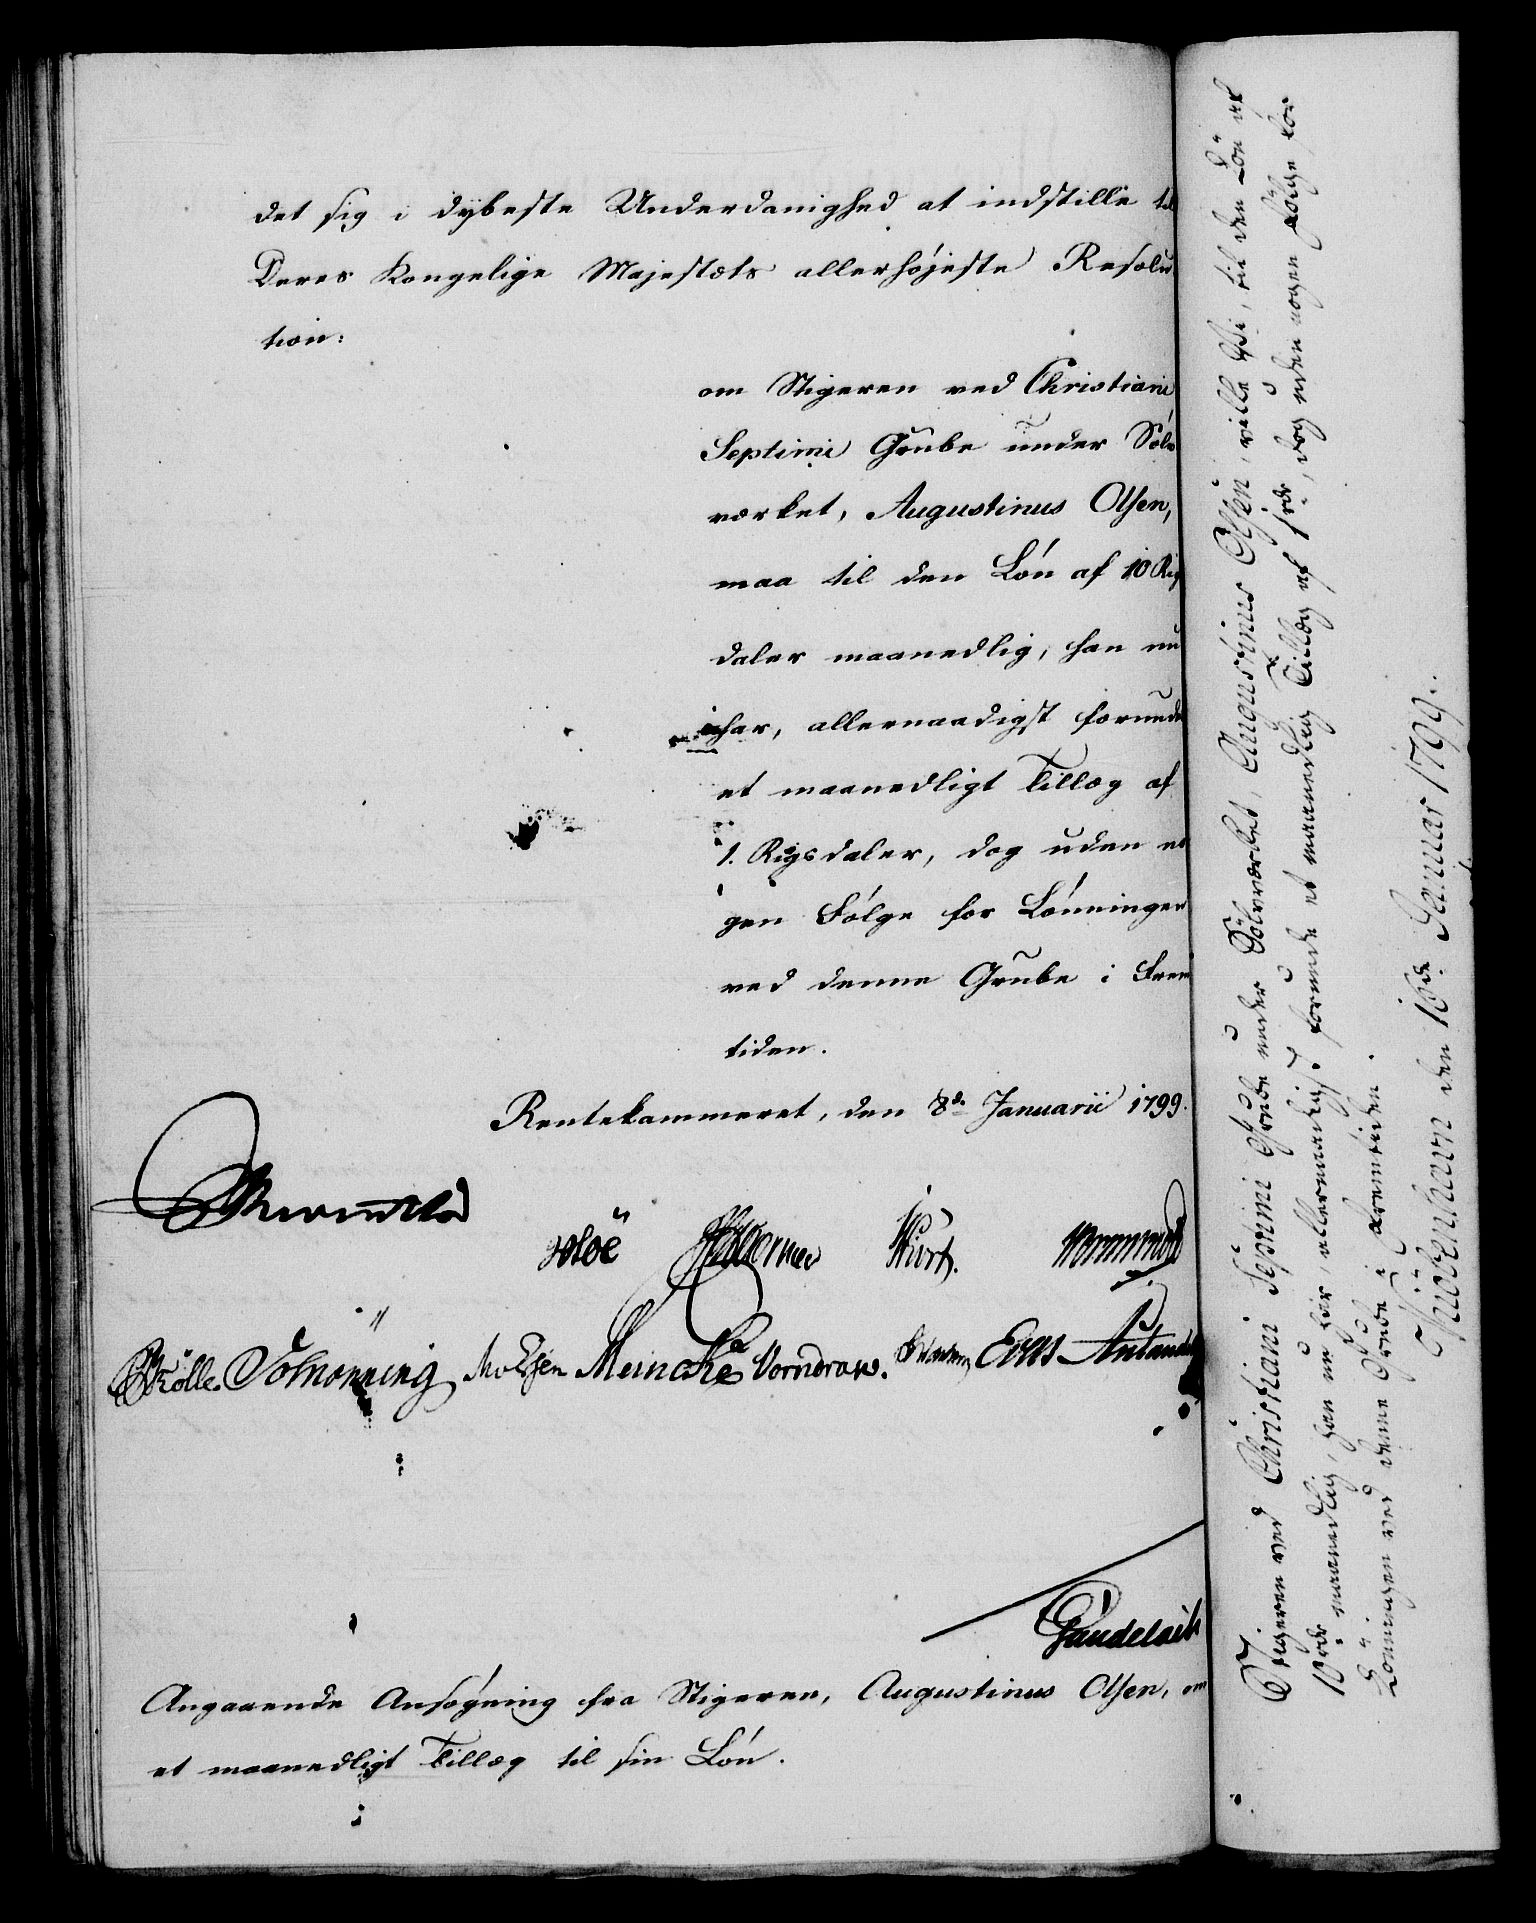 det sig i dybeste Underdanighed at indstille til
Deres Kongelige Majestæts allerhöjeste Resolu
tion:
om Stigeren ved Christiani
Septimi Grube under Sölv
værket, Augustinus Olsen,
maa til den Lön af 10 Rigs
daler maanedlig, han nu
har, allernaadigst forunde
et maanedligt Tillæg af
1. Rigsdaler, dog uden no
gen Fölge for Lönningen
ved denne Grube i Frem
tiden.
Rentekammeret, den 8de Januarii 1799.
Wormskiold
Meincke Vorndran.
Angaaende Ansögning fra Stigeren, Augustinus Olsen, om
et maanedligt Tillæg til sin Lön.
Stigeren ved Christiani Septimi Grube under Sölvværket, Augustinus Olsen, ville Vi, til den Lön af
10 rdr maanedlig, han nu har, allernaadigst forunde et maanedlig Tillæg af 1 rdr, dog uden nogen Fölge for
Lönningen ved denne Grube i Fremtiden.
Kiöbenhavn den 16de Januar 1799.